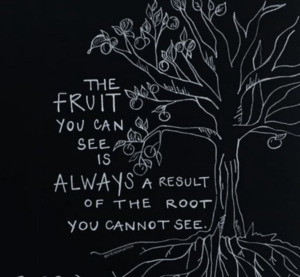 THE
FRUIT
YOU CAN
SEE
IS
ALWAYS A RESULT
OF THE ROOT
YOU CANNOT SEE.